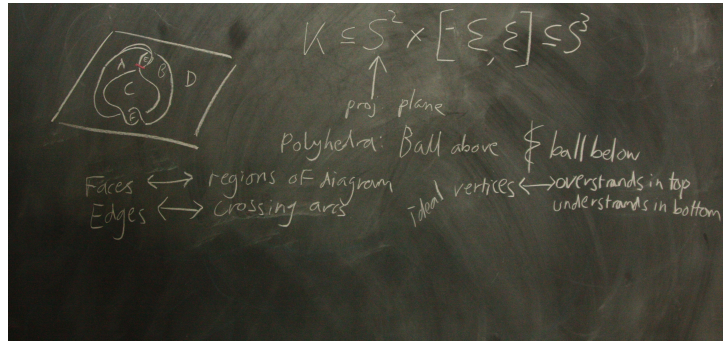 K ⊆ S² × [-ε, ε] ⊆ S³
proj plane
A
B
C
D
E
Polyhedra: Ball above & ball below
Faces ↔ regions of diagram
Edges ↔ crossing arcs
ideal vertices ↔ overstrands in top
understrands in bottom